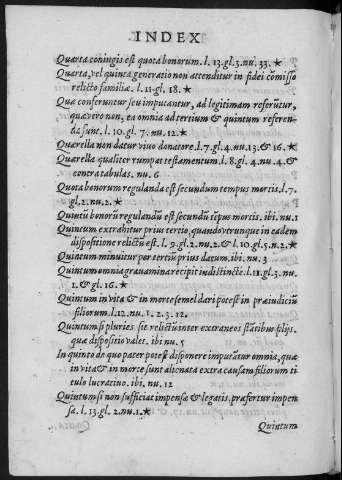 INDEX
Quarta coniugis est quota bonorum. l. 13. gl. 3. nu. 33. ★
Quarta, vel quinta generatio non attenditur in fidei cõmisso
relicto familiæ. l. 11. gl. 18. ★
Quæ conferuntur seu imputantur, ad legitimam referũtur,
quæ vero non, ea omnia ad tertium & quintum referen-
da sunt. l. 10. gl. 7. nu. 12. ★
Quærella non datur viuo donatore. l. 7. gl. 4. nu. 13. & 16. ★
Quærella qualiter rumpat testamentum. l. 8. gl. 4. nu. 4. &
contra tabulas. nu. 6
Quota bonorum regulanda est secundum tempus mortis. l. 7.
gl. 2. nu. 2. ★
Quintũ bonorũ regulandũ est secundũ tẽpus mortis. ibi. nu. 1
Quintum extrahitur prius tertio, quando vtrunque in eadem
dispositione relictũ est. l. 9. gl. 2. nu. 2. & l. 10. gl. 3. n. 2. ★
Quintum minuitur per tertiũ prius datum. ibi. nu. 3
Quintum omnia grauamina recipit indistincte. l. 11. gl. 3. nu.
1. & gl. 16. ★
Quintum in vita & in morte semel dari potest in præiudiciũ
filiorum. l. 12. nu. 1. 2. 3. 12.
Quintum si pluries sit relictũ inter extraneos stãtibus filijs.
quæ dispositio valet. ibi. nu. 5
In quinto an quo pater potest disponere imputãtur omnia, quæ
in vita & in morte sunt alienata extra causam filiorum ti
tulo lucratiuo. ibi. nu. 12
Quintum si non sufficiat impensæ & legatis, præfertur impen
sæ. l. 13. gl. 2. nu. 1. ★
Quintum